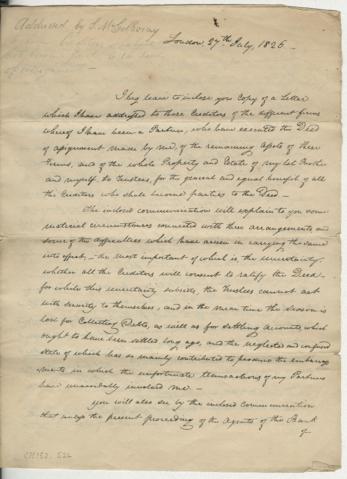 Adduced by S. McGillivray
London, 27th July, 1826.
I beg leave to inclose you Copy of a Letter
which I have addressed to those Creditors of the different firms
whereof I have been a Partner, who have executed the Deed
of assignment made by me, of the remaining assets of these
Firms, and of the whole Property and Estate of my late Brother
and myself to Trustees, for the general and equal benefit of all
the Creditors who shall become parties to the Deed.—
The inclosed communication will explain to you some
material circumstances connected with these arrangements and
some of the difficulties which have arisen in carrying the same
into effect,— the most important of which is, the uncertainty
whether all the Creditors will consent to ratify the Deed,
for while this uncertainty subsists, the Trustees cannot act
with security to themselves, and in the mean time the season is
lost for Collecting Debts, as well as for settling accounts, which
ought to have been settled long ago, and the neglected and confused
state of which has so mainly contributed to the embarrass-
ments in which the unfortunate transactions of my Partners
have unavoidably involved me.—
You will also see by the inclosed Communication
that unless the present proceeding of the Agents of the Bank
of